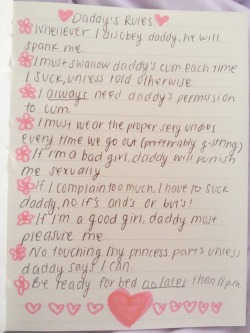 Daddy's Rules
Whenever I disobey daddy, he will
spank me
I must swallow daddy's cum each time
I suck, unless told otherwise
I always need daddy's permission
to cum
I must wear the proper sexy undies
every time we go out (preferrably g-string)
If I'm a bad girl, daddy will punish
me sexually
If I complain too much, I have to suck
daddy, no if's and's or but's!
If I'm a good girl, daddy must
pleasure me
No touching my princess parts unless
daddy says I can
Be ready for bed no later than 11p.m.